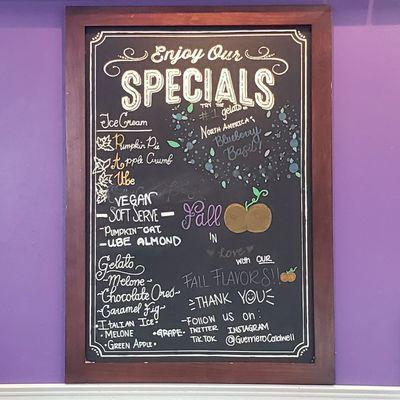 Enjoy Our
SPECIALS
Ice Cream
Pumpkin Pie
Apple Crumb
Ube
VEGAN
SOFT SERVE
- PUMPKIN OAT
- UBE ALMOND
Gelato
- Melone -
- Chocolate Oreo -
- Caramel Fig -
• ITALIAN ICE •
• MELONE
• GRAPE •
• GREEN APPLE •
TRY THE
#1 gelato
NORTH AMERICA'S
Blueberry
Basil!
Fall
IN
Love
with OUR
FALL FLAVORS!!
THANK YOU
- FOLLOW US ON:
TWITTER INSTAGRAM
TIKTOK @GuerrieroCaldwell